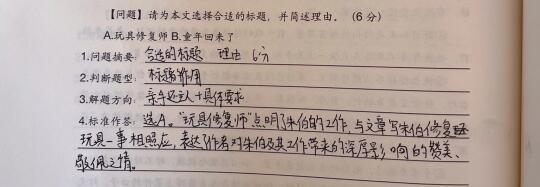 【问题】请为本文选择合适的标题，并简述理由。（6 分）
A.玩具修复师 B.童年回来了
1.问题摘要：合适的标题 理由 6分
2.判断题型：标题作用
3.解题方向：亲乎还主人+具体要求
4.标准作答：选A。“玩具修复师”点明了朱伯的工作，与文章写朱伯修复
玩具一事相照应，表达作者对朱伯及其工作带来的深层影响的赞美、
敬佩之情。